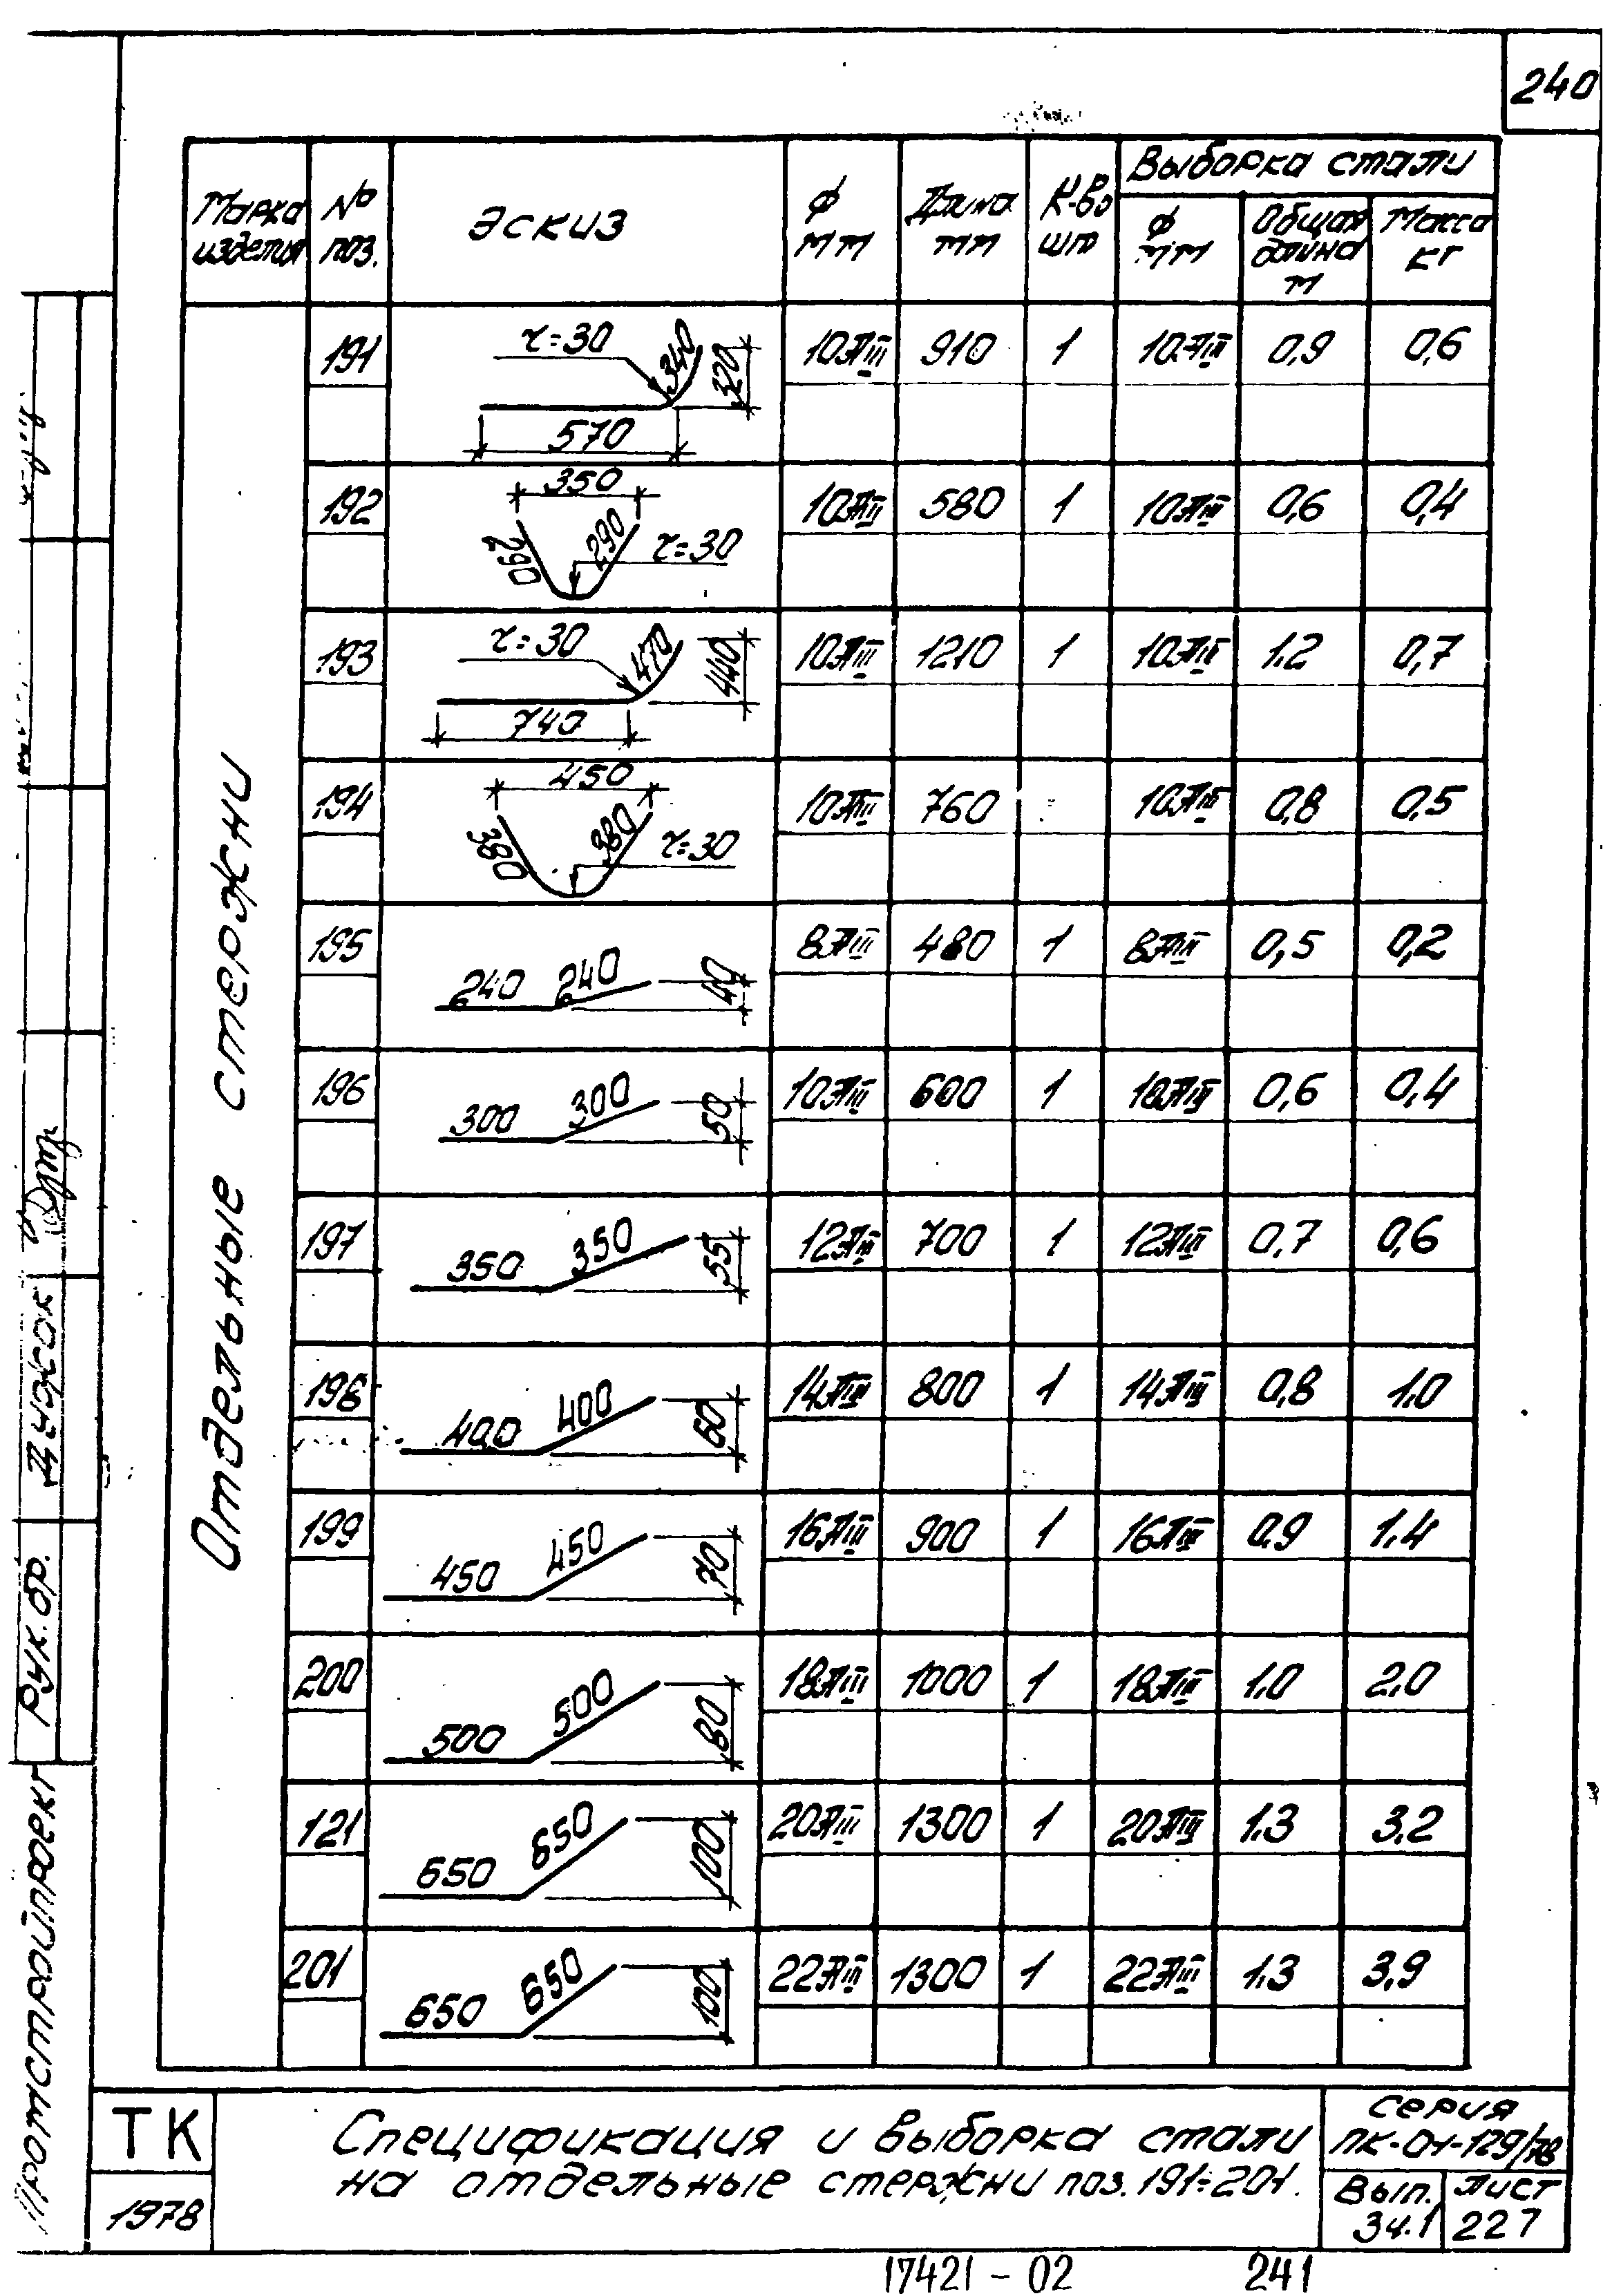 240
Марка изделия
№ поз.
Эскиз
ф мм
Длина мм
К-во шт
Выборка стали
ф мм
Общая длина м
Масса кг
Отдельные стержни
191 r=30 340 320 570 10АIII 910 1 10АIII 0,9 0,6
192 350 290 290 r=30 10АIII 580 1 10АIII 0,6 0,4
193 r=30 470 440 740 10АIII 1210 1 10АIII 1.2 0,7
194 450 380 380 r=30 10АIII 760 10АIII 0,8 0,5
195 240 240 40 8АIII 480 1 8АIII 0,5 0,2
196 300 300 50 10АIII 600 1 10АIII 0,6 0,4
197 350 350 55 12АIII 700 1 12АIII 0,7 0,6
198 400 400 60 14АIII 800 1 14АIII 0,8 1.0
199 450 450 70 16АIII 900 1 16АIII 0,9 1.4
200 500 500 80 18АIII 1000 1 18АIII 1.0 2.0
121 650 650 100 20АIII 1300 1 20АIII 1.3 3.2
201 650 650 100 22АIII 1300 1 22АIII 1.3 3,9
Рук. бр.
ТК
1978
Спецификация и выборка стали
на отдельные стержни поз. 191÷201.
Серия
ПК-01-129/78
Вып. 3ч.1
Лист 227
17421-02 241